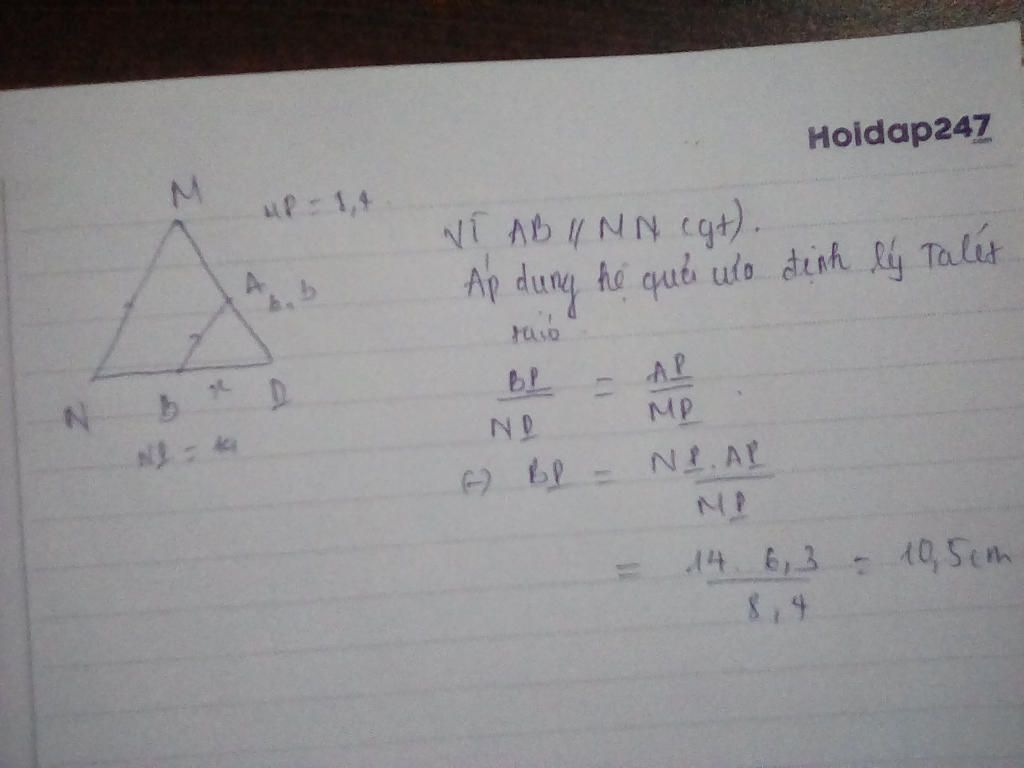 Hoidap247
M
MP = 8,4
A
N
B
x
P
Vì AB // MN (gt).
Áp dụng hệ quả vào định lý Talét
BP/NP = AP/MP
(=) BP = NP.AP/MP
= 14.6,3/8,4 = 10,5cm